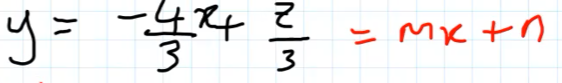 y = -4/3 x + 2/3 = mx + n